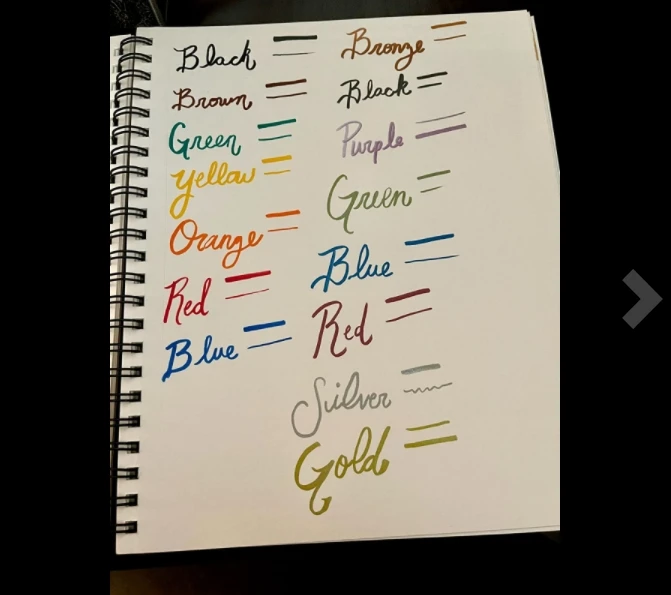 Black
Brown
Green
Yellow
Orange
Red
Blue
Bronze
Black
Purple
Green
Blue
Red
Silver
Gold